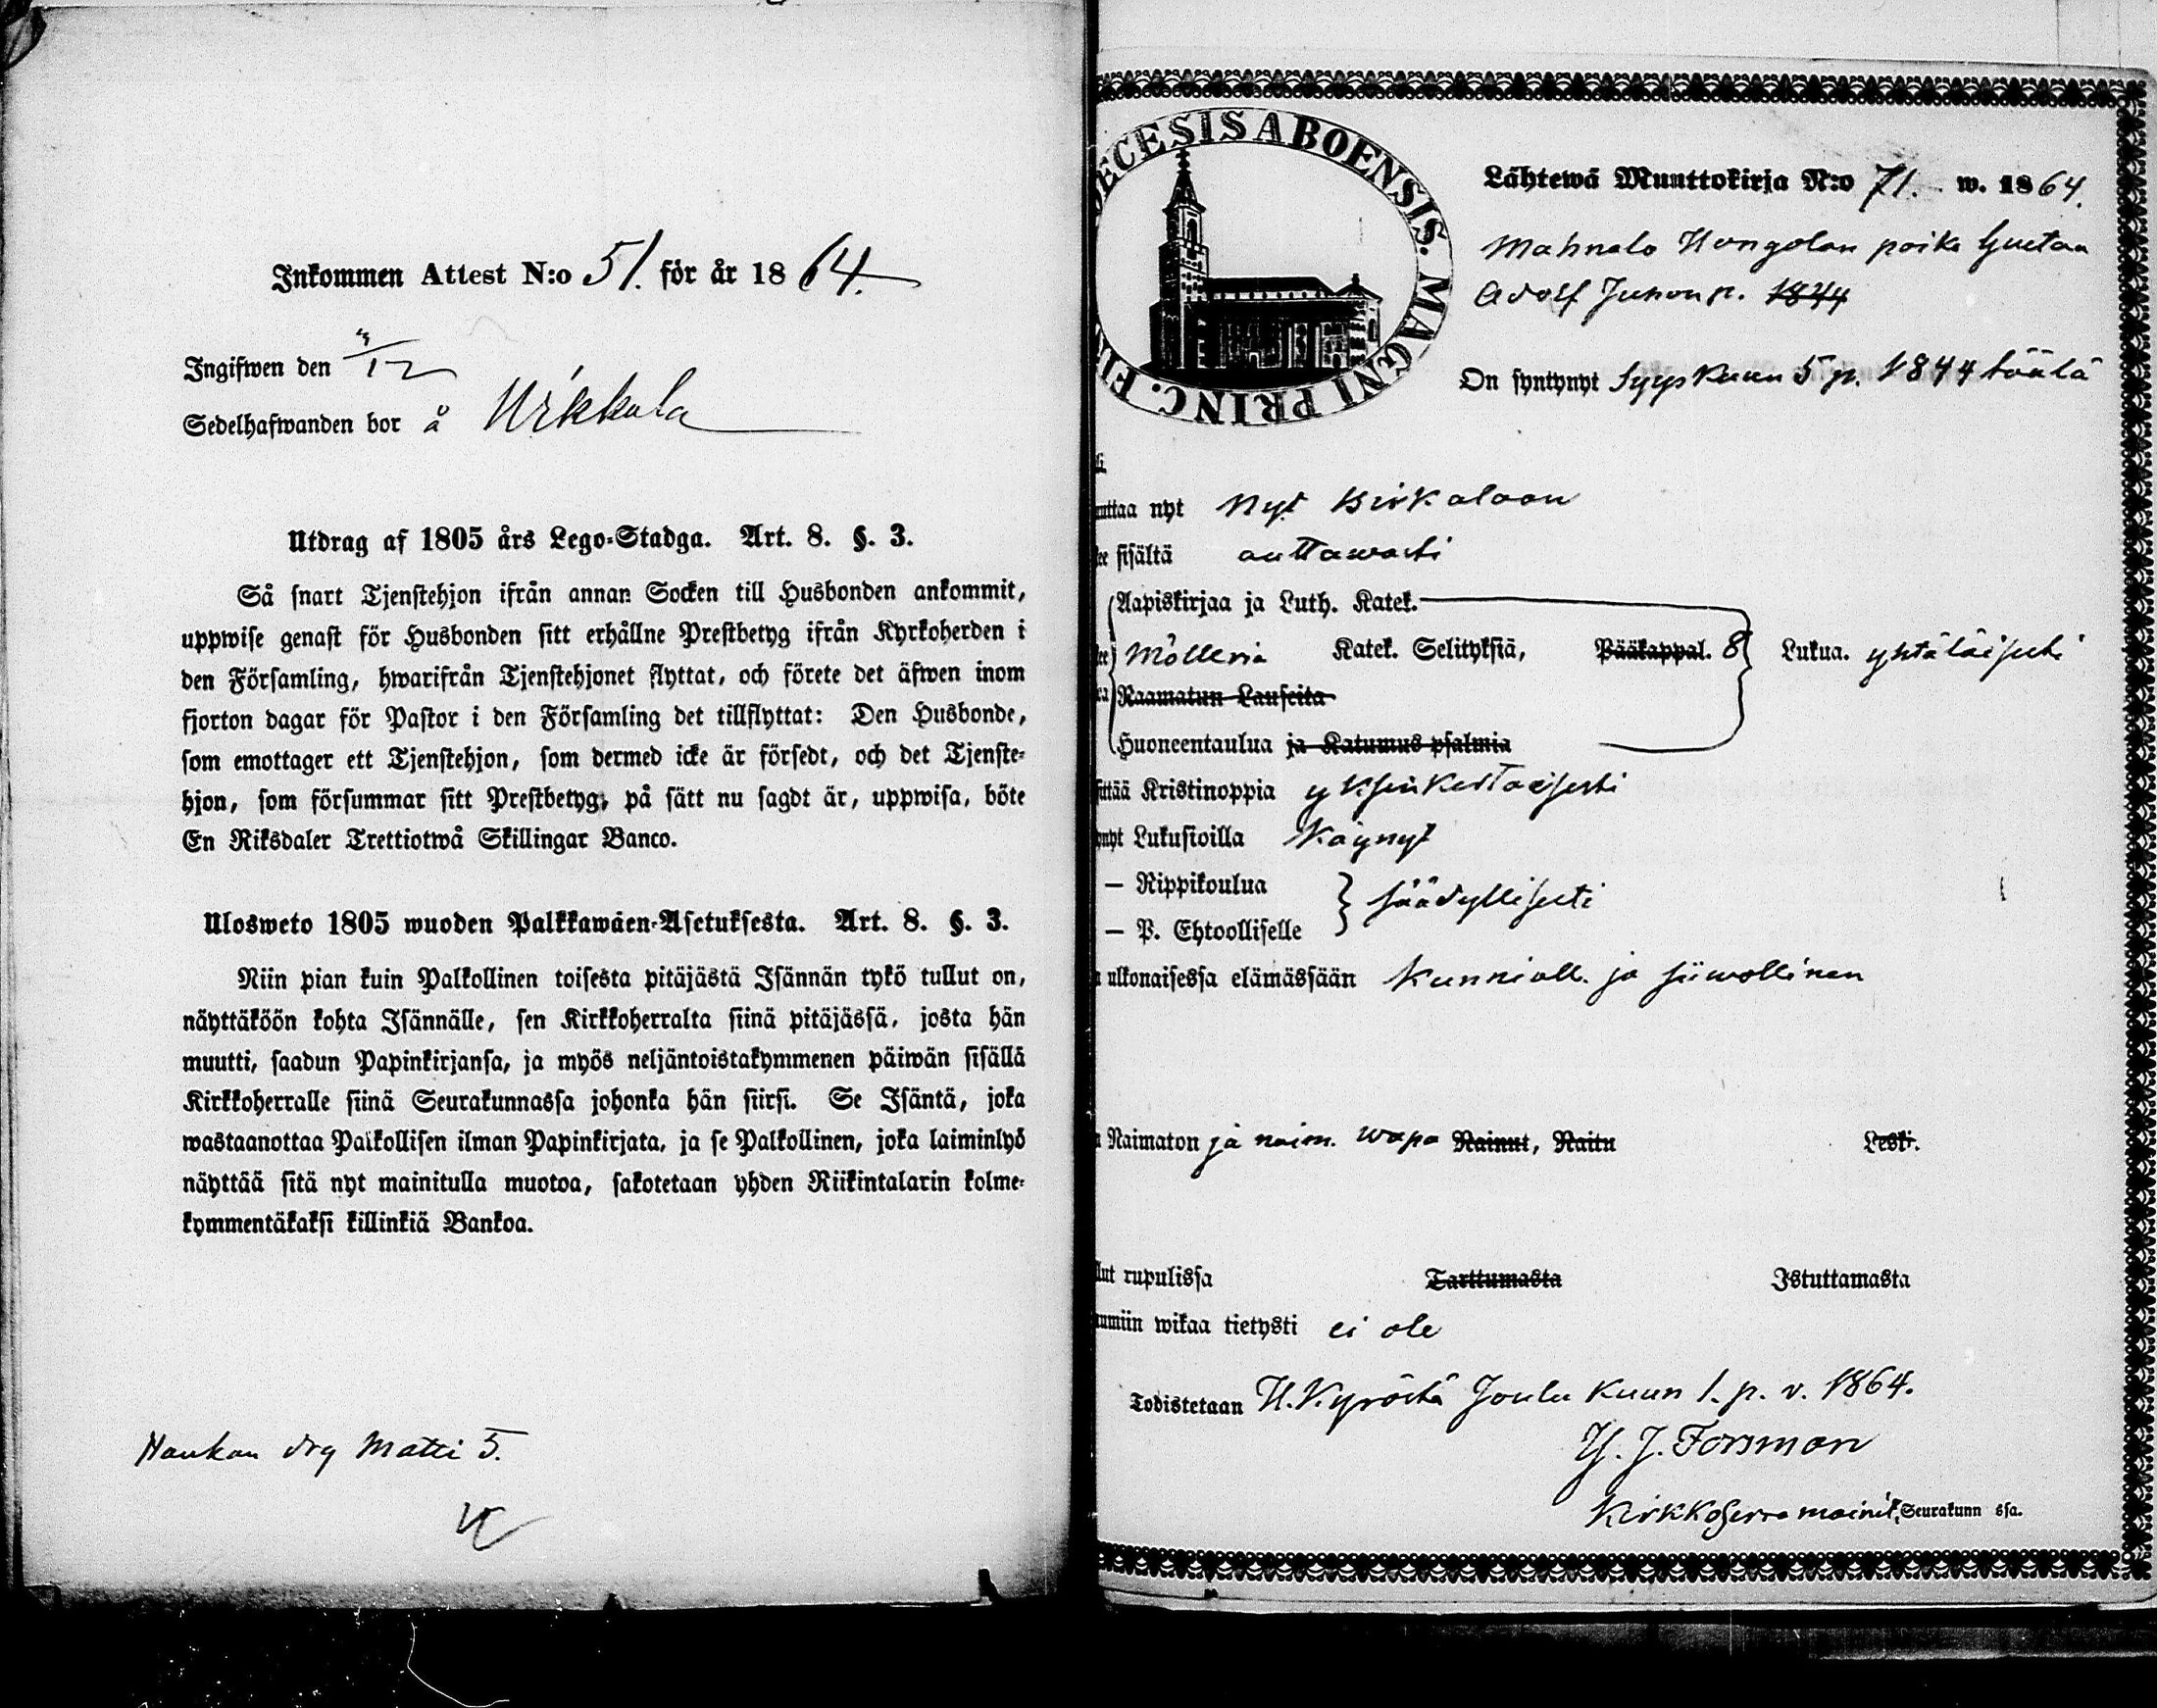 Inkommen Attest N:o 51. för år 1864.
Ingifwen den 3/12
Sedelhafwanden bor å Wikkula
Utdrag af 1805 års Lego-Stadga. Art. 8. §. 3.
Så snart Tjenstehjon ifrån annan Socken till Husbonden ankommit,
uppwise genast för Husbonden sitt erhållne Prestbetyg ifrån Kyrkoherden i
den Församling, hwarifrån Tjenstehjonet flyttat, och förete det äfwen inom
fjorton dagar för Pastor i den Församling det tillflyttat: Den Husbonde,
som emottager ett Tjenstehjon, som dermed icke är försedt, och det Tjenste-
hjon, som försummar sitt Prestbetyg, på sätt nu sagdt är, uppwisa, böte
En Riksdaler Trettiotwå Skillingar Banco.
Ulosweto 1805 wuoden Palkkawäen-Asetuksesta. Art. 8. §. 3.
Niin pian kuin Palkollinen toisesta pitäjästä Isännän tykö tullut on,
näyttäköön kohta Isännälle, sen Kirkkoherralta siinä pitäjässä, josta hän
muutti, saadun Papinkirjansa, ja myös neljäntoistakymmenen päiwän sisällä
Kirkkoherralle siinä Seurakunnassa johonka hän siirsi. Se Isäntä, joka
wastaanottaa Palkollisen ilman Papinkirjata, ja se Palkollinen, joka laiminlyö
näyttää sitä nyt mainitulla muotoa, sakotetaan yhden Riikintalarin kolme-
kymmentäkaksi killinkiä Bankoa.
Haukan drg Matti 5.
ECESIS ABOENSIS. MAGNI PRINC. FI
Lähtewä Muuttokirja N:o 71. w. 1864.
Mahnala Hongolan poika Gustaa
Adolf Juhonp. 1844
On syntynyt Syyskuun 5 p. 1844 täälä
uttaa nyt Nyt Birkalaan
sisältä auttawasti
Aapiskirjaa ja Luth. Katek.
Mölleria Katek. Selityksiä, Pääkappal. 8 Lukua. yhtäläisesti
Raamatun Lauseita
Huoneentaulua ja Katumus psalmia
sittää Kristinoppia yksinkertaisesti
ynyt Lukusioilla Käynyt
— Rippikoulua
säädyllisesti
— P. Ehtoolliselle
ulkonaisessa elämässään Kunniall. ja siiwollinen
Naimaton ja naim. wapa Nainut, Naitu Leski.
lut rupulissa Tarttumasta Istuttamasta
umiin wikaa tietysti ei ole
Todistetaan H.Kyröstä Joulu Kuun 1. p. v. 1864.
H. J. Forsman
Kirkkoherra mainit. Seurakunn ssa.